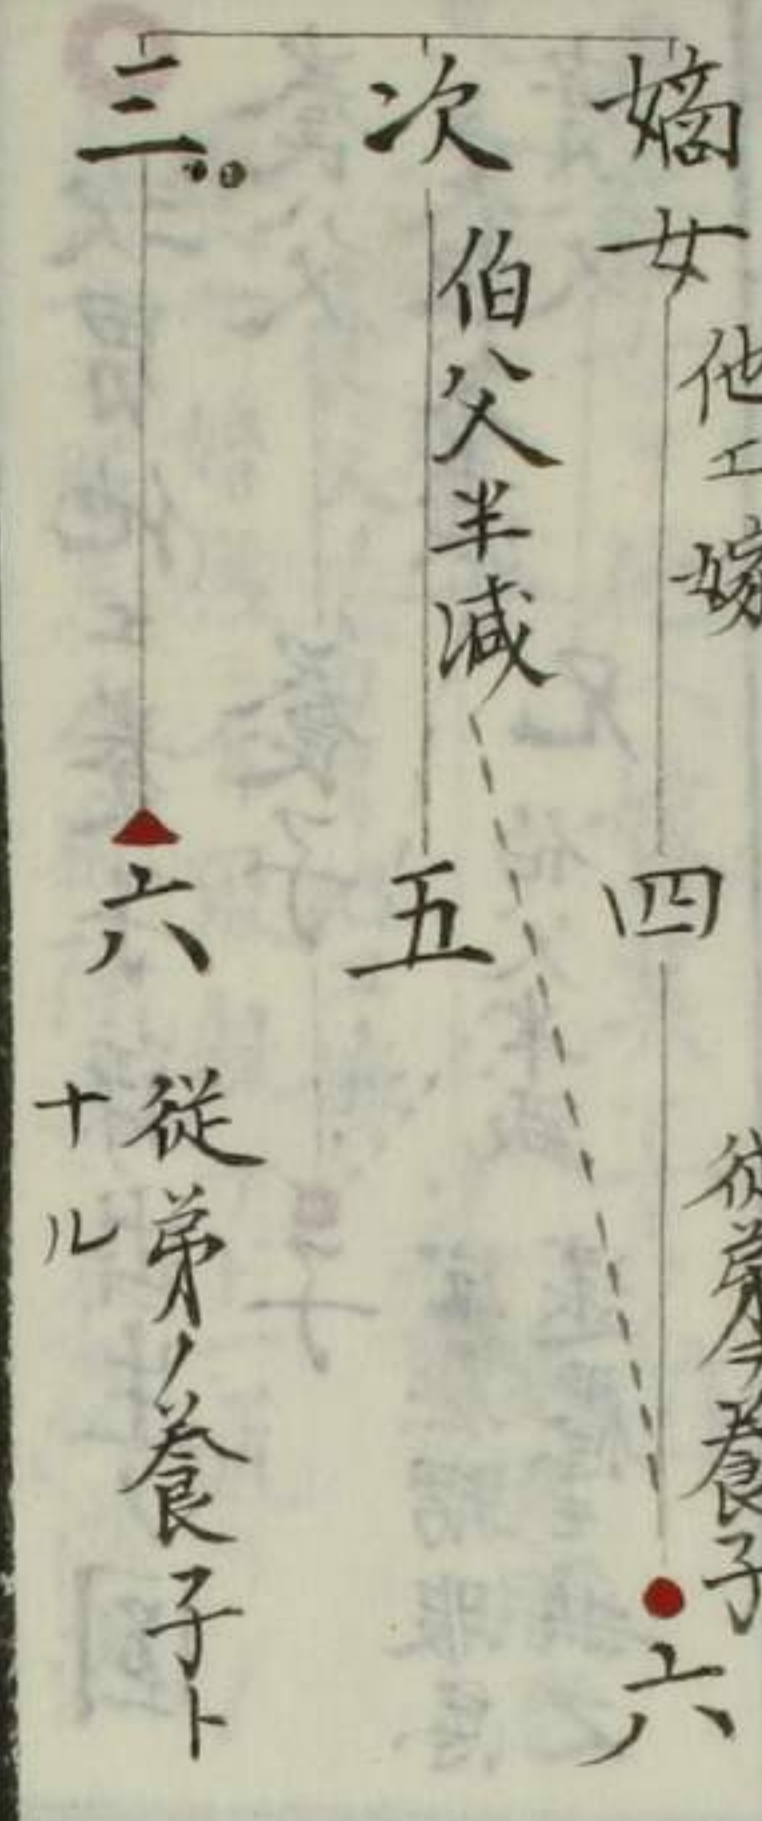 嫡女
他エ嫁
四
従弟ヲ養子
六
次
伯父半減
五
三
六
従弟ノ養子ト
ナル